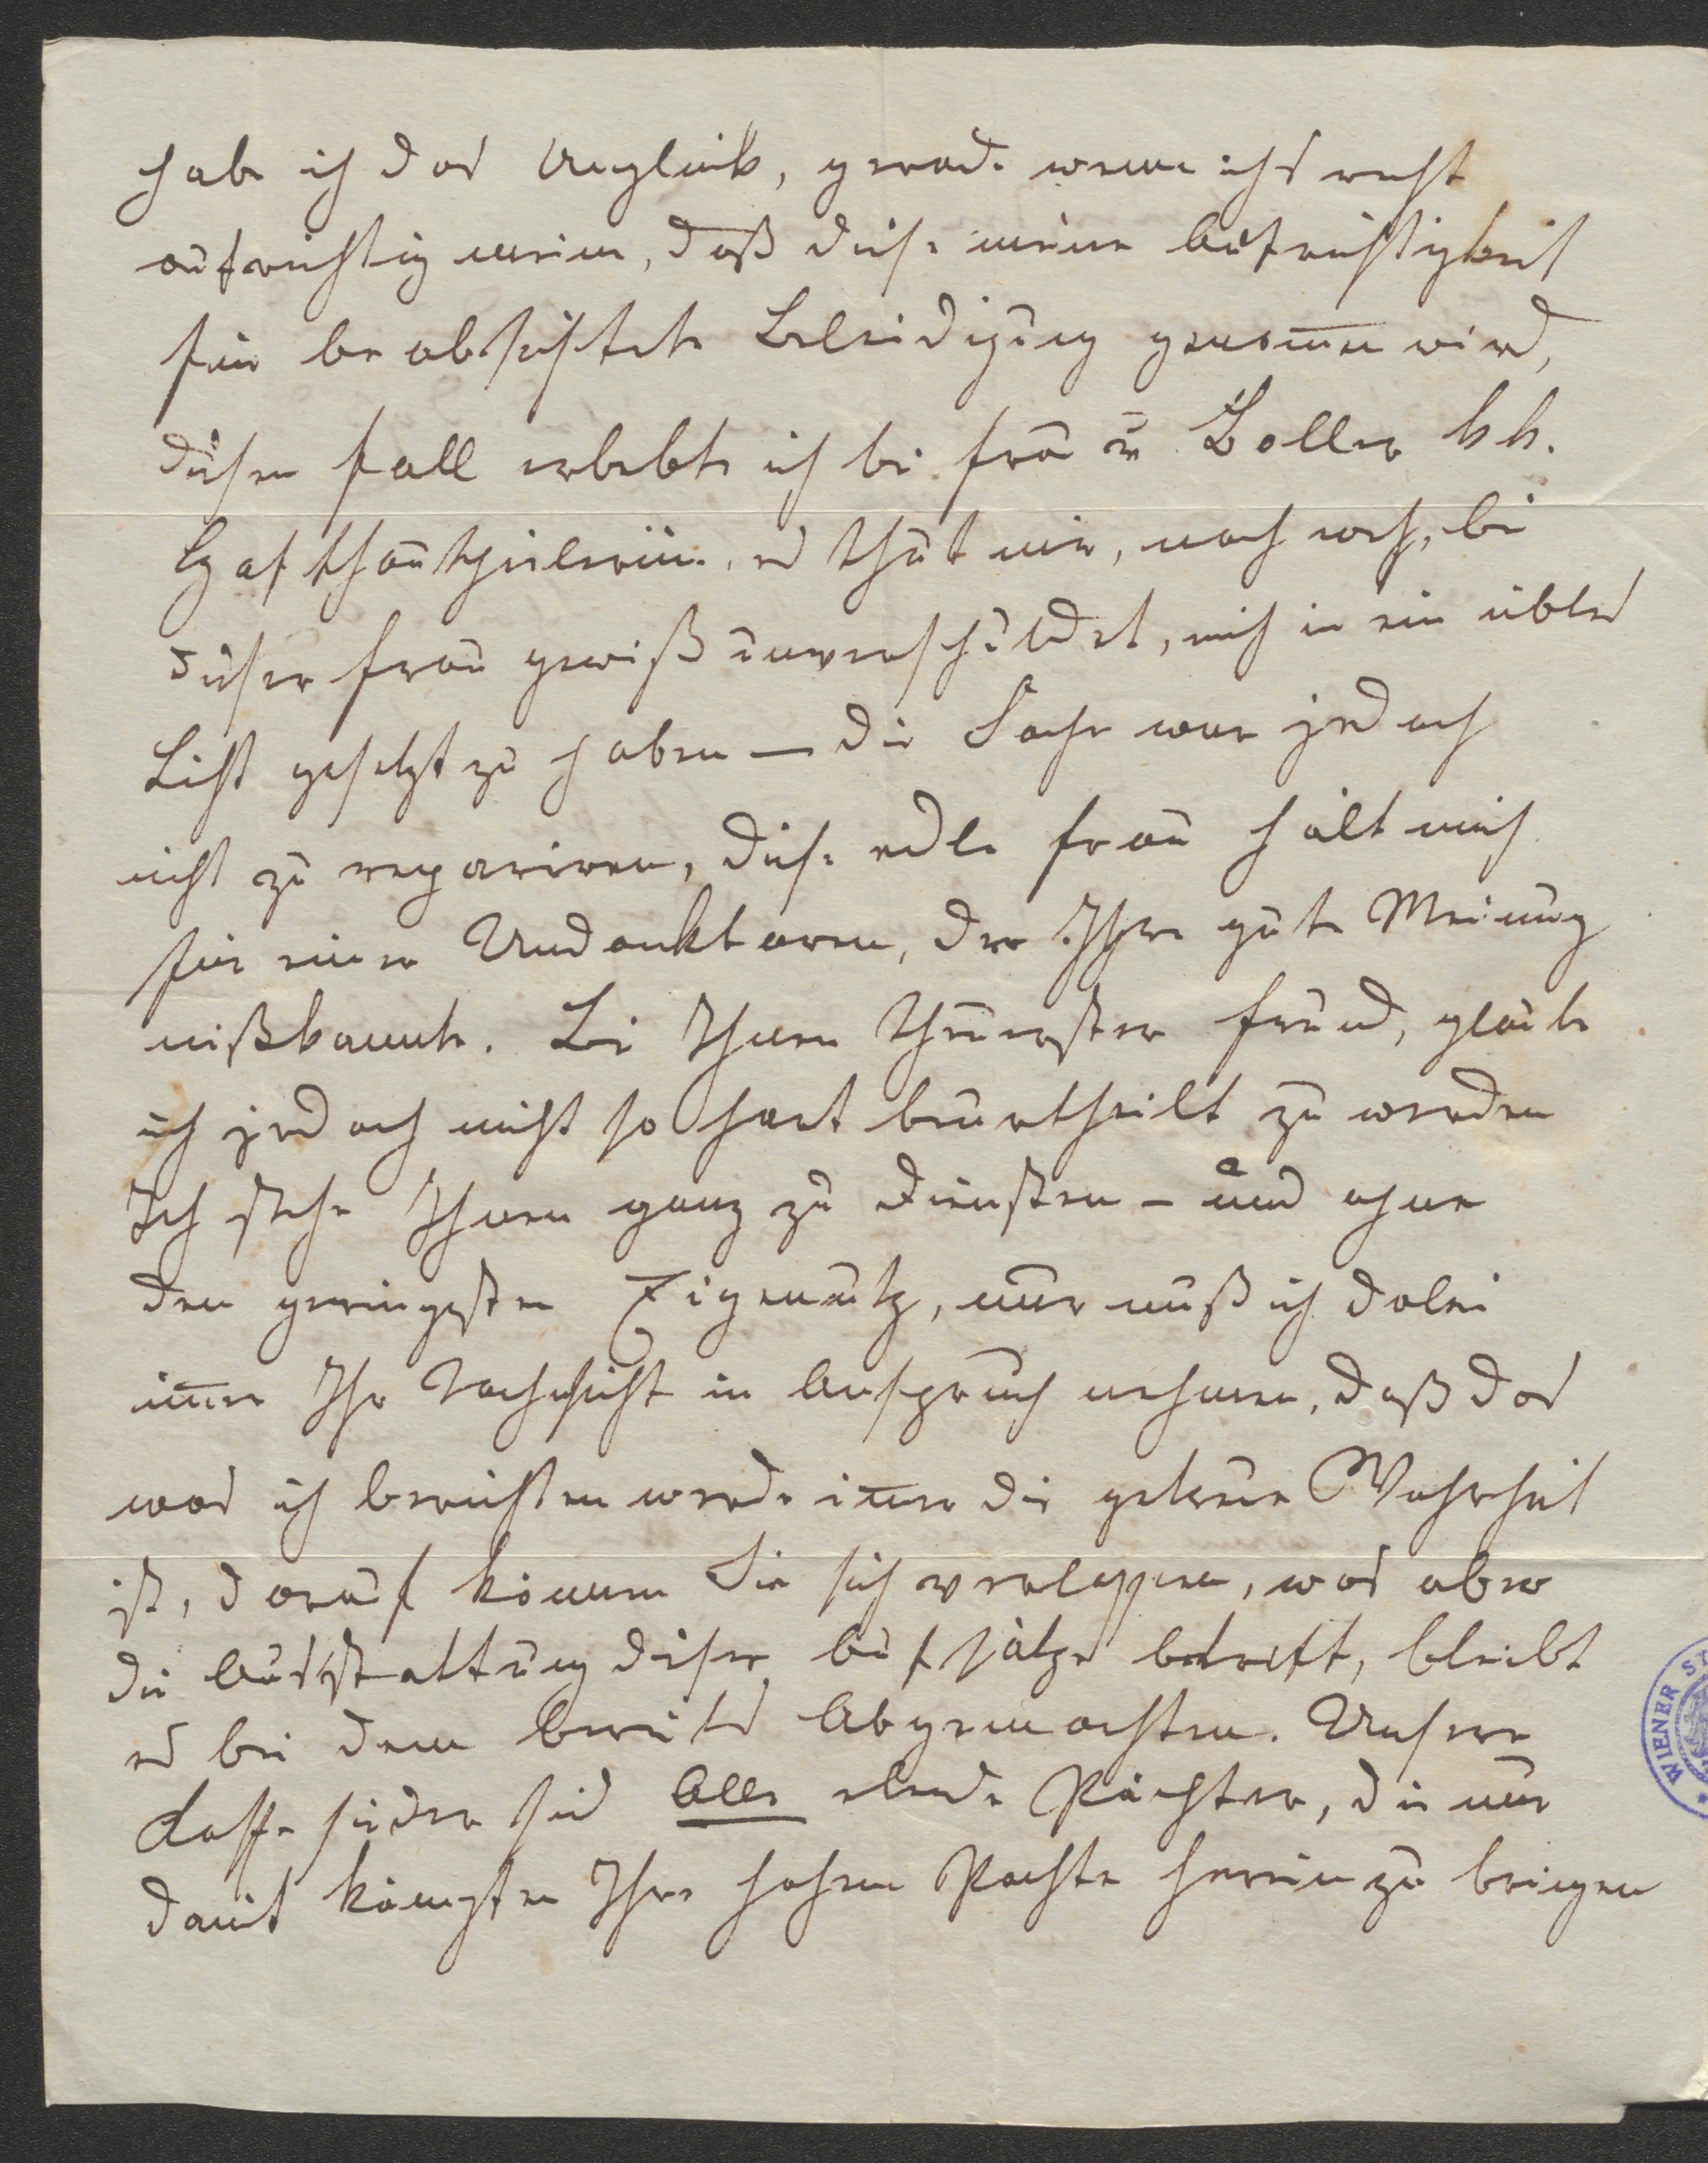 habe ich das Unglük, gerade wenn ichs recht
aufrichtig meine, daß diese meine Aufrichtigkeit
für beabsichtete Beleidigung genomen wird,
diesen Fall erlebte ich bei Frau v Koller kk.
Hofschauspielerin. es thut mir, noch weh, bei
dieser Frau gewiß unverschuldet, mich in ein übles
Licht gesetzt zu haben — die Sache war jedoch
nicht zu repariren, diese edle Frau hält mich
für einen Undankbaren, der Ihre gute Meinung
mißkannte. Bei Ihnen theuerster Freund, glaube
ich jedoch nicht so hart beurtheilt zu werden
Ich stehe Ihnen ganz zu Diensten – und ohne
den geringsten Eigennutz, nur muß ich dabei
imer Ihr Nachsicht in Anspruch nehmen, daß das
was ich berichten werde imer die getreue Wahrheit
ist, darauf können Sie sich verlassen, was aber
die Ausstattung dieser Aufsätze betrefft, bleibt
es bei dem bereits Abgemachten. Unsere
Kaffesieder sind Alle elende Pächter, die nur
damit kämpfen Ihre hohen Pachte herein zu bringen
WIENER ST